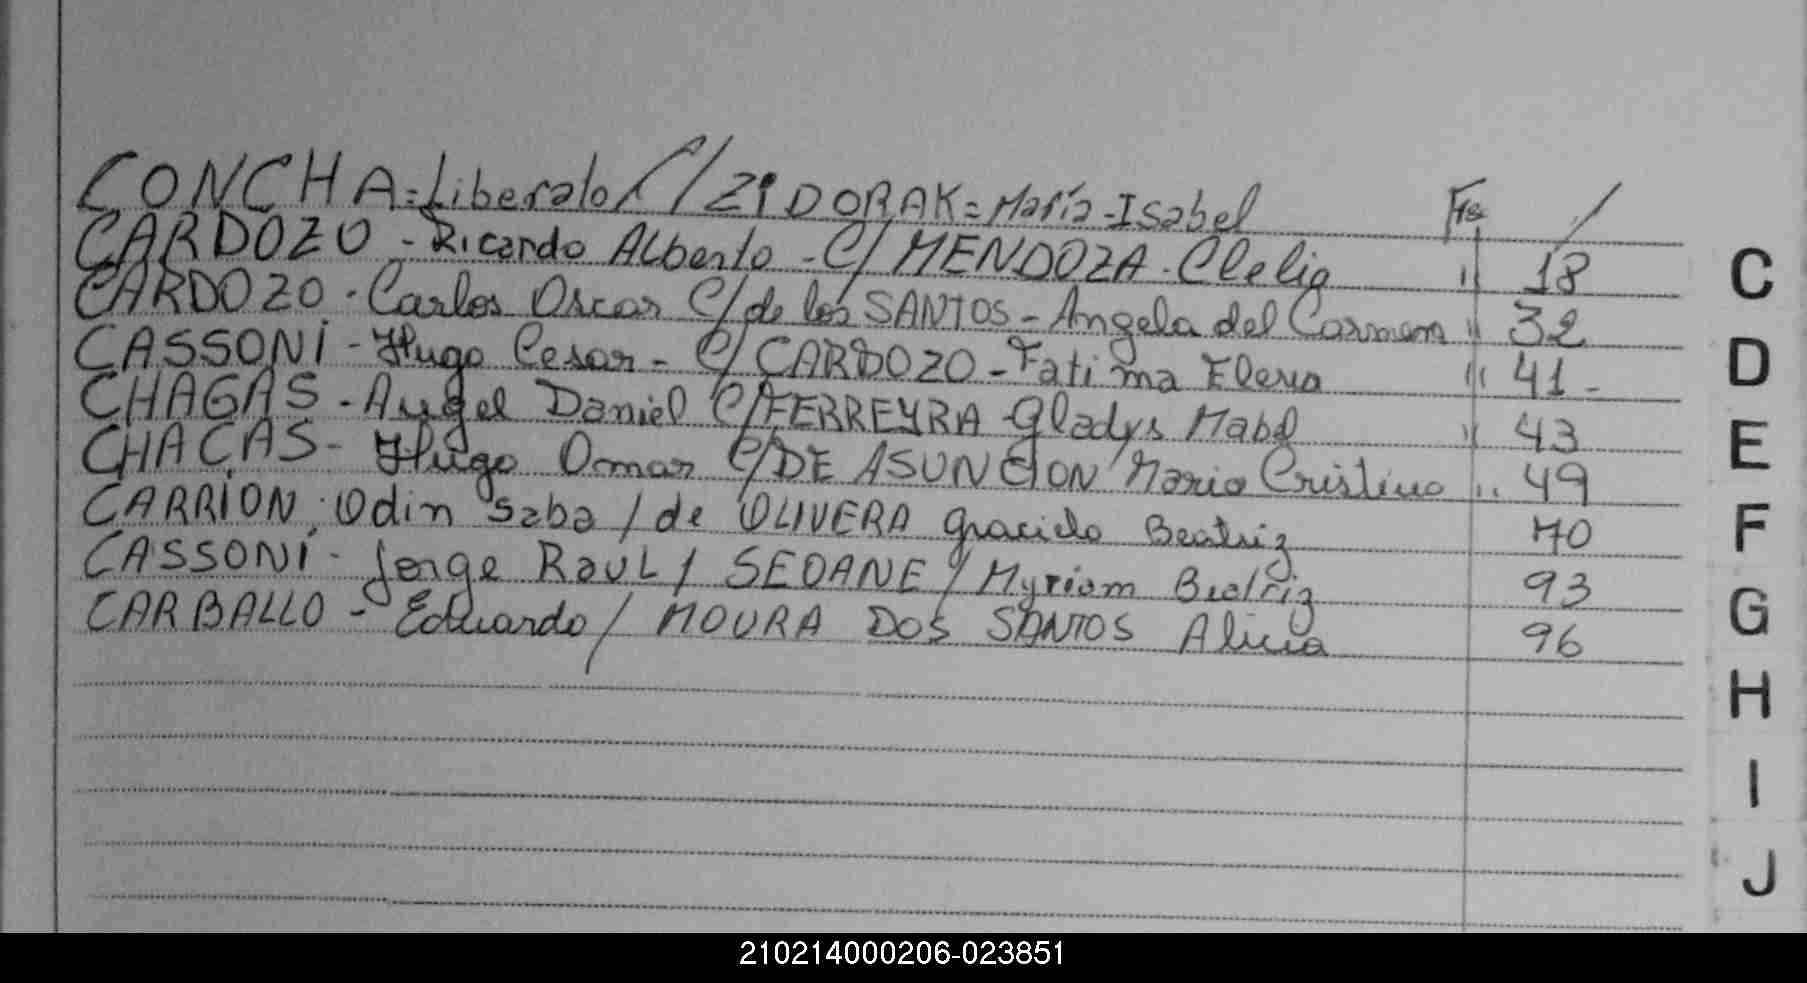 CONCHA=Liberato C/ZIDORAK=María-Isabel Fs. /
CARDOZO - Ricardo ALberto - C/ MENDOZA. Clelia " 18
CARDOZO. Carlos Oscar C/ de los SANTOS - Angela del Carmen " 32
CASSONi - Hugo Cesar - C/ CARDOZO - Fatima Elena " 41-
CHAGAS - Angel Daniel C/ FERREYRA Gladys Mabel " 43
CHAGAS - Hugo Omar C/ DE ASUNCION Maria Cristina " 49
CARRiON. Odin Saba / de OLIVERA Graciela Beatriz 70
CASSONi - Jorge RaUL / SEOANE / Myriam Beatriz 93
CARBALLO - Eduardo / MOURA DOS SANTOS Alicia 96
C
D
E
F
G
H
I
J
210214000206-023851